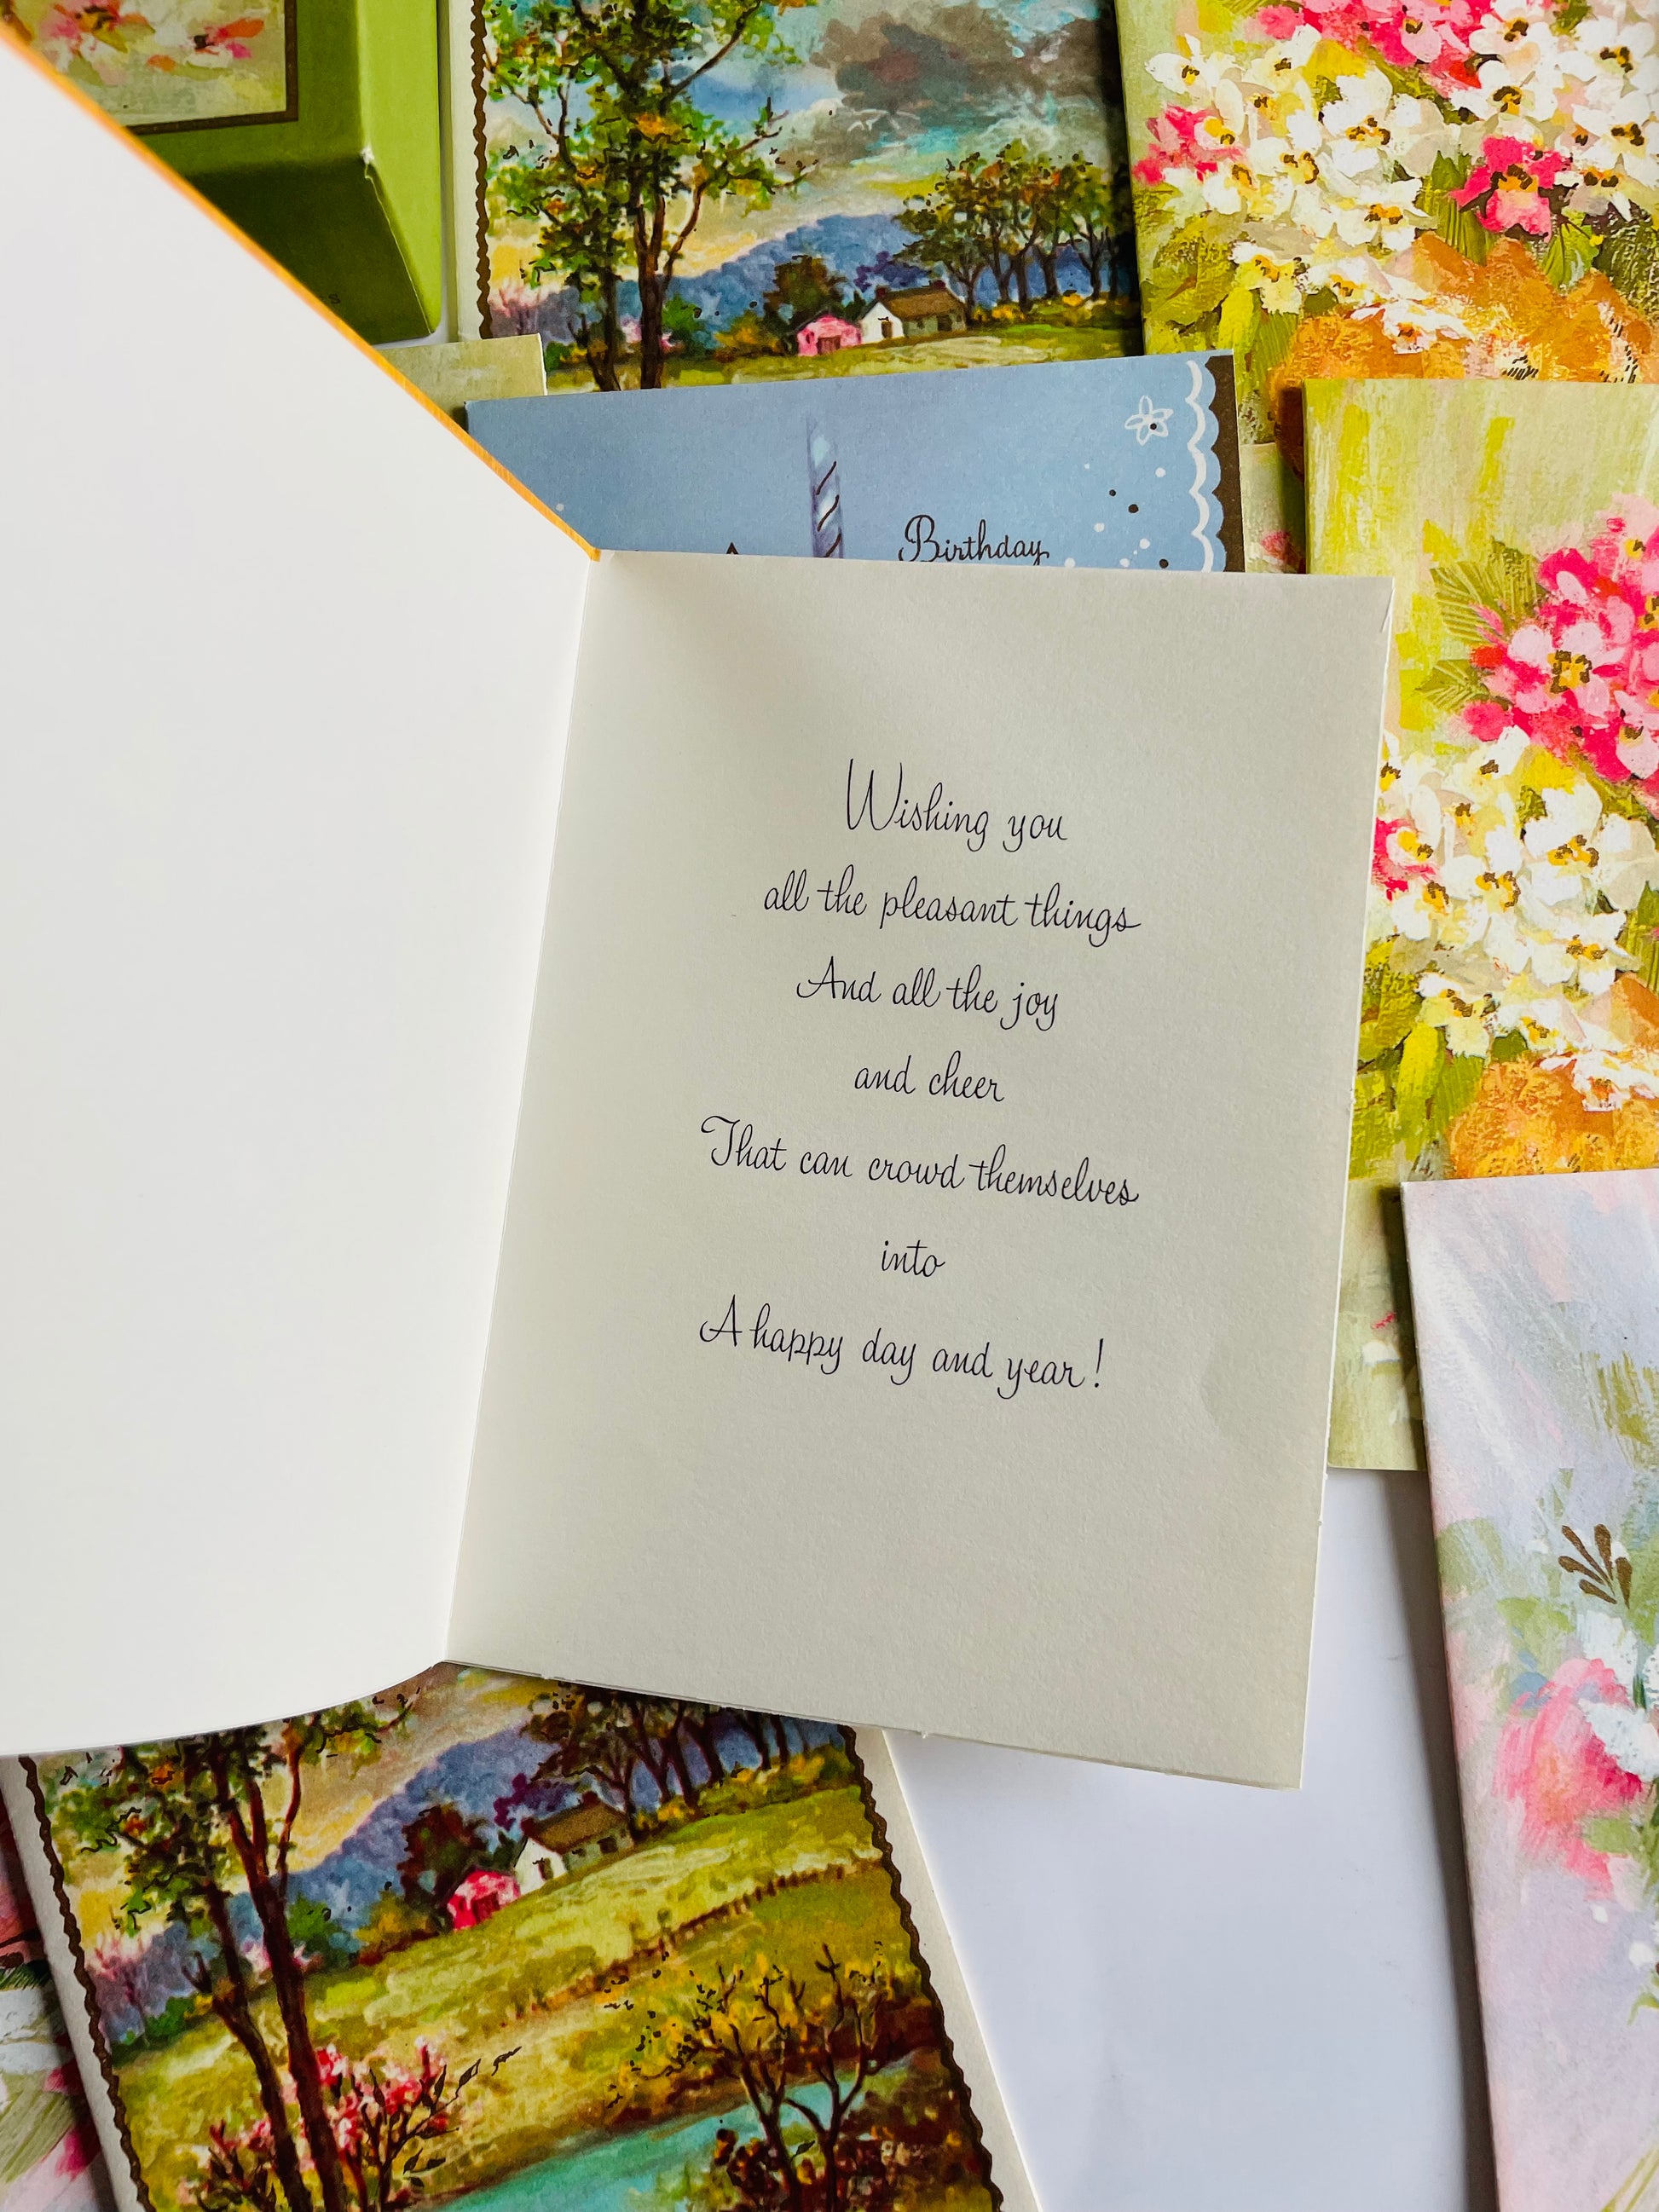 Birthday
Wishing you
all the pleasant things
And all the joy
and cheer
That can crowd themselves
into
A happy day and year!